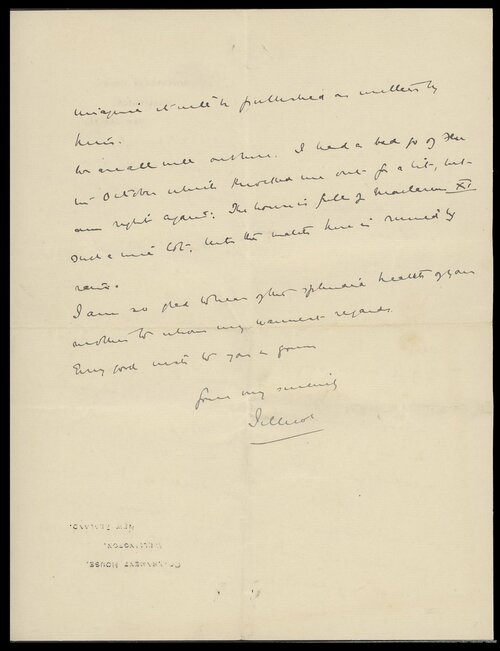 imagine it will be published as written by
him.
We are all well out here. I had a bad go of Flu
in October which knocked me out for a bit, but
am right again: The house is full of Maclaren XI
such a nice lot, but the match here is ruined by
rain.
I am so glad to hear of the splendid health of your
mother to whom my warmest regards
Every good wish to you & yours
Yours very sincerely
Jellicoe
GOVERNMENT HOUSE.
WELLINGTON.
NEW ZEALAND.